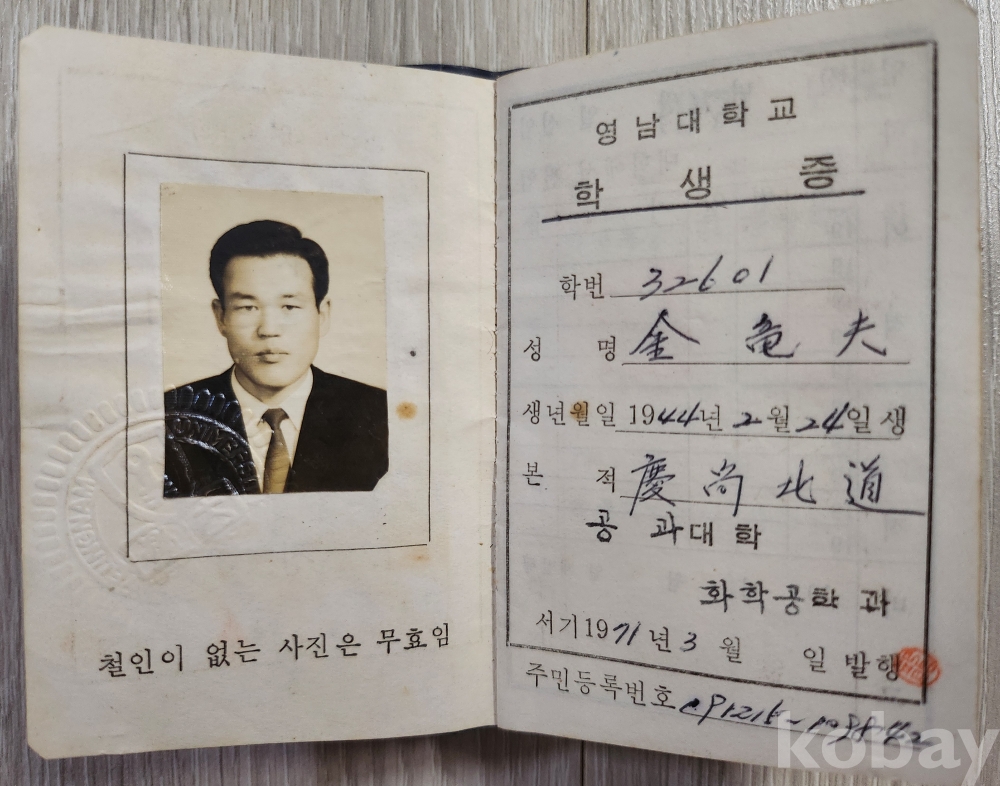 YEUNGNAM
철인이 없는 사진은 무효임
영남대학교
학 생 증
학번 32601
성 명 金竜夫
생년월일 1944년 2월 24일생
본 적 慶尚北道
공 과대학
화학공학 과
서기 1971년 3월 일 발행
주민등록번호
kobay